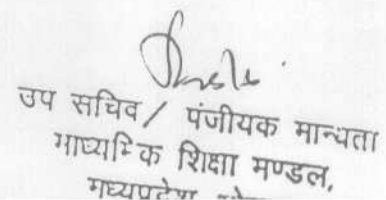 उप सचिव / पंजीयक मान्यता
माध्यमिक शिक्षा मण्डल,
मध्यप्रदेश